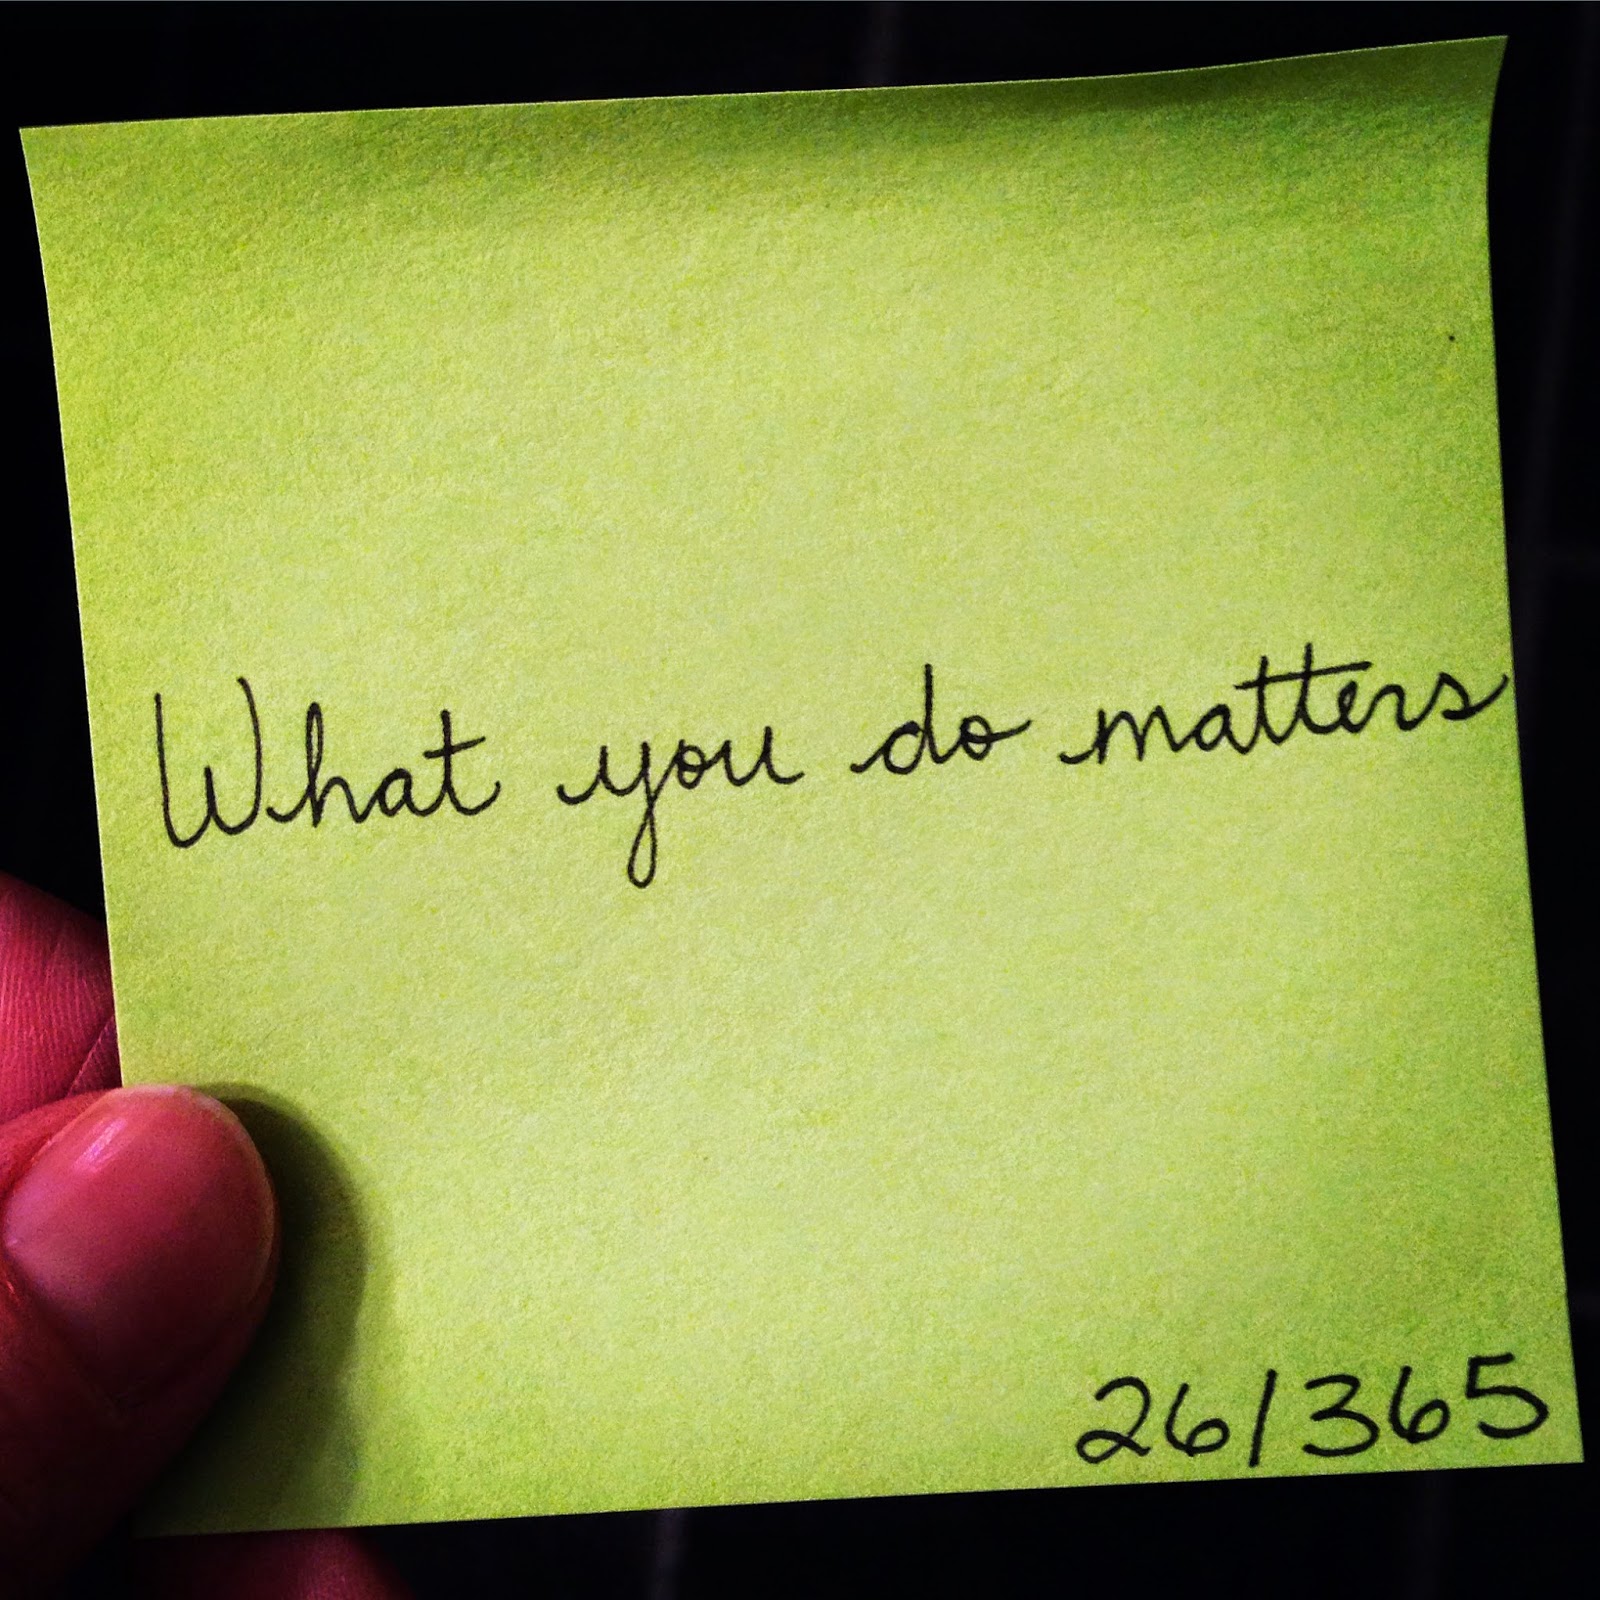 What you do matters
26/365